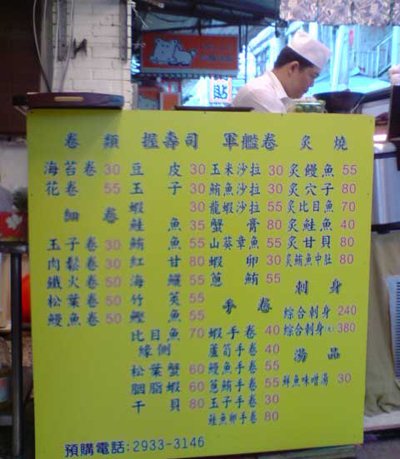 貼
卷類 握壽司 軍艦卷 炙燒
海苔卷 30 豆皮 30 玉米沙拉 30 炙鰻魚 55
花卷 55 玉子 30 鮪魚沙拉 30 炙穴子 80
蝦 30 龍蝦沙拉 55 炙比目魚 70
細卷 鮭魚 35 蟹膏 80 炙鮭魚 40
玉子卷 30 鮪魚 55 山葵章魚 55 炙甘貝 80
肉鬆卷 30 紅甘 80 蝦卵 30 炙鮪魚中肚 80
鐵火卷 50 海鱺 55 蔥鮪 55 刺身
松葉卷 50 竹筴 55 手卷 綜合刺身 240
鰻魚卷 50 鰹魚 55 綜合刺身(大) 380
比目魚 70 蝦手卷 40
緣側 蘆筍手卷 40 湯品
松葉蟹 60 鰻魚手卷 55 鮮魚味噌湯 30
胭脂蝦 60 蔥鮪手卷 55
干貝 80 玉子手卷 30
鮭魚卵手卷 80
預購電話:2933-3146